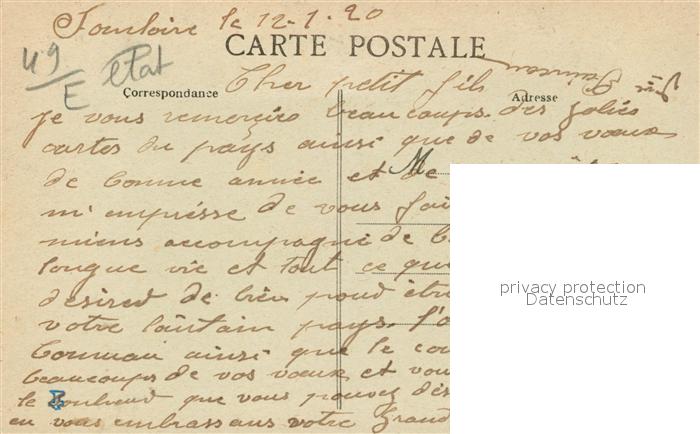 le 12-1-20
CARTE POSTALE
49
E
état
Cher petit fils
Correspondance
Adresse
je vous remerçies beaucoups des jolies
cartes du pays ainsi que de vos vœux
M
de bonne année et de
m'emprésse de vous fai
miens accompagné de b
longue vie et tout ce que
désired de bien pour être
votre lointain pays. J'a
ainsi que le cou
beaucoups de vos vœux et vou
le bonheur que vous pouvez dés
en vous embrassans votre Grand
privacy protection
Datenschutz